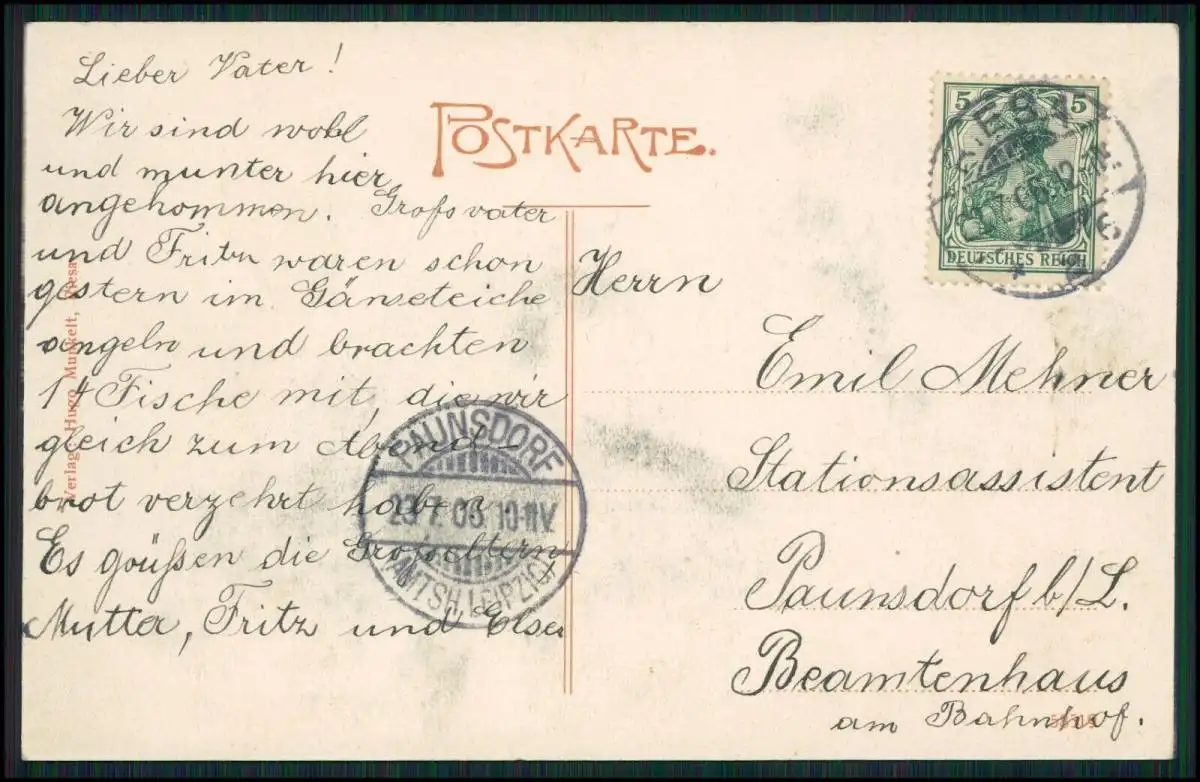 Lieber Vater!
Wir sind wohl
und munter hier
angekommen. Großvater
und Fritz waren schon
gestern im Gänseteiche
angeln und brachten
14 Fische mit, die wir
gleich zum Abend-
brot verzehrt haben.
Es grüßen die Großeltern
Mutter, Fritz und Else
Verlag: Hugo Munkelt, Riesa
POSTKARTE.
5 5
DEUTSCHES REICH
RIESA
Herrn
Emil Mehner
Stationsassistent
Paunsdorf b/L.
Beamtenhaus
am Bahnhof.
PAUNSDORF
23.7.06. 10-11V.
(AMTSH. LEIPZIG)